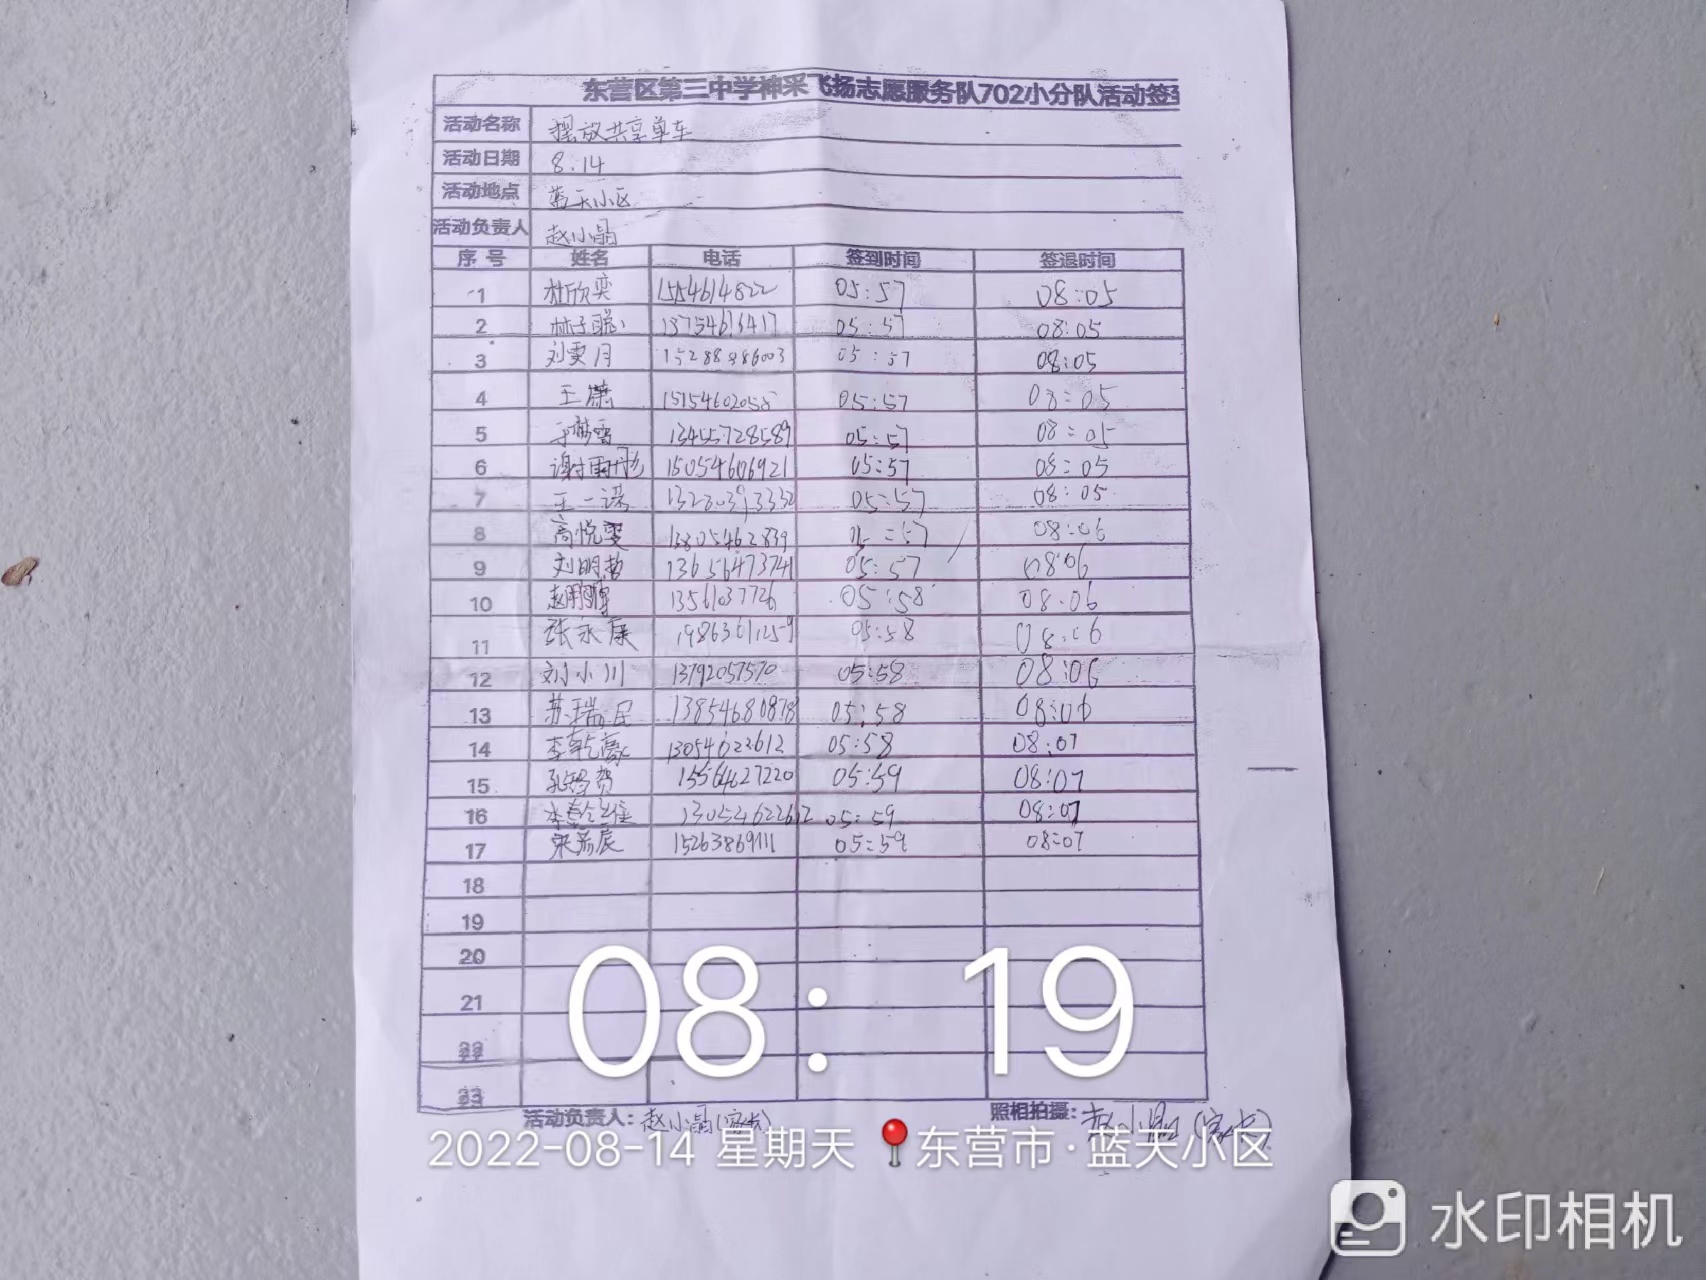 东营区第三中学神采飞扬志愿服务队702小分队活动签到
活动名称 摆放共享单车
活动日期 8.14
活动地点 蓝天小区
活动负责人 赵小晶
序号 姓名 电话 签到时间 签退时间
1 杜欣奕 1554614822 05:57 08:05
2 林子聪 05:57 08:05
3 刘雯月 05:57 08:05
4 王潇 15154602058 05:57 08:05
5 13455728589 05:57 08:05
6 谢雨彤 15054606921 05:57 08:05
7 王一诺 05:57 08:05
8 高悦雯 13805462839 05:57 08:06
9 刘明哲 13656473741 05:57 08:06
10 赵鹏 13561037726 05:58 08:06
11 张永康 19863611259 05:58 08:06
12 刘小川 13792057570 05:58 08:06
13 苏瑞民 13854680878 05:58 08:06
14 李乾豪 13054622612 05:58 08:07
15 15564627220 05:59 08:07
16 李乾维 13054622612 05:59 08:07
17 15263869111 05:59 08:07
18
19
20
21
22
23
08:19
活动负责人: 赵小晶(家长) 照相拍摄: 赵小晶(家长)
2022-08-14 星期天 东营市·蓝天小区
水印相机